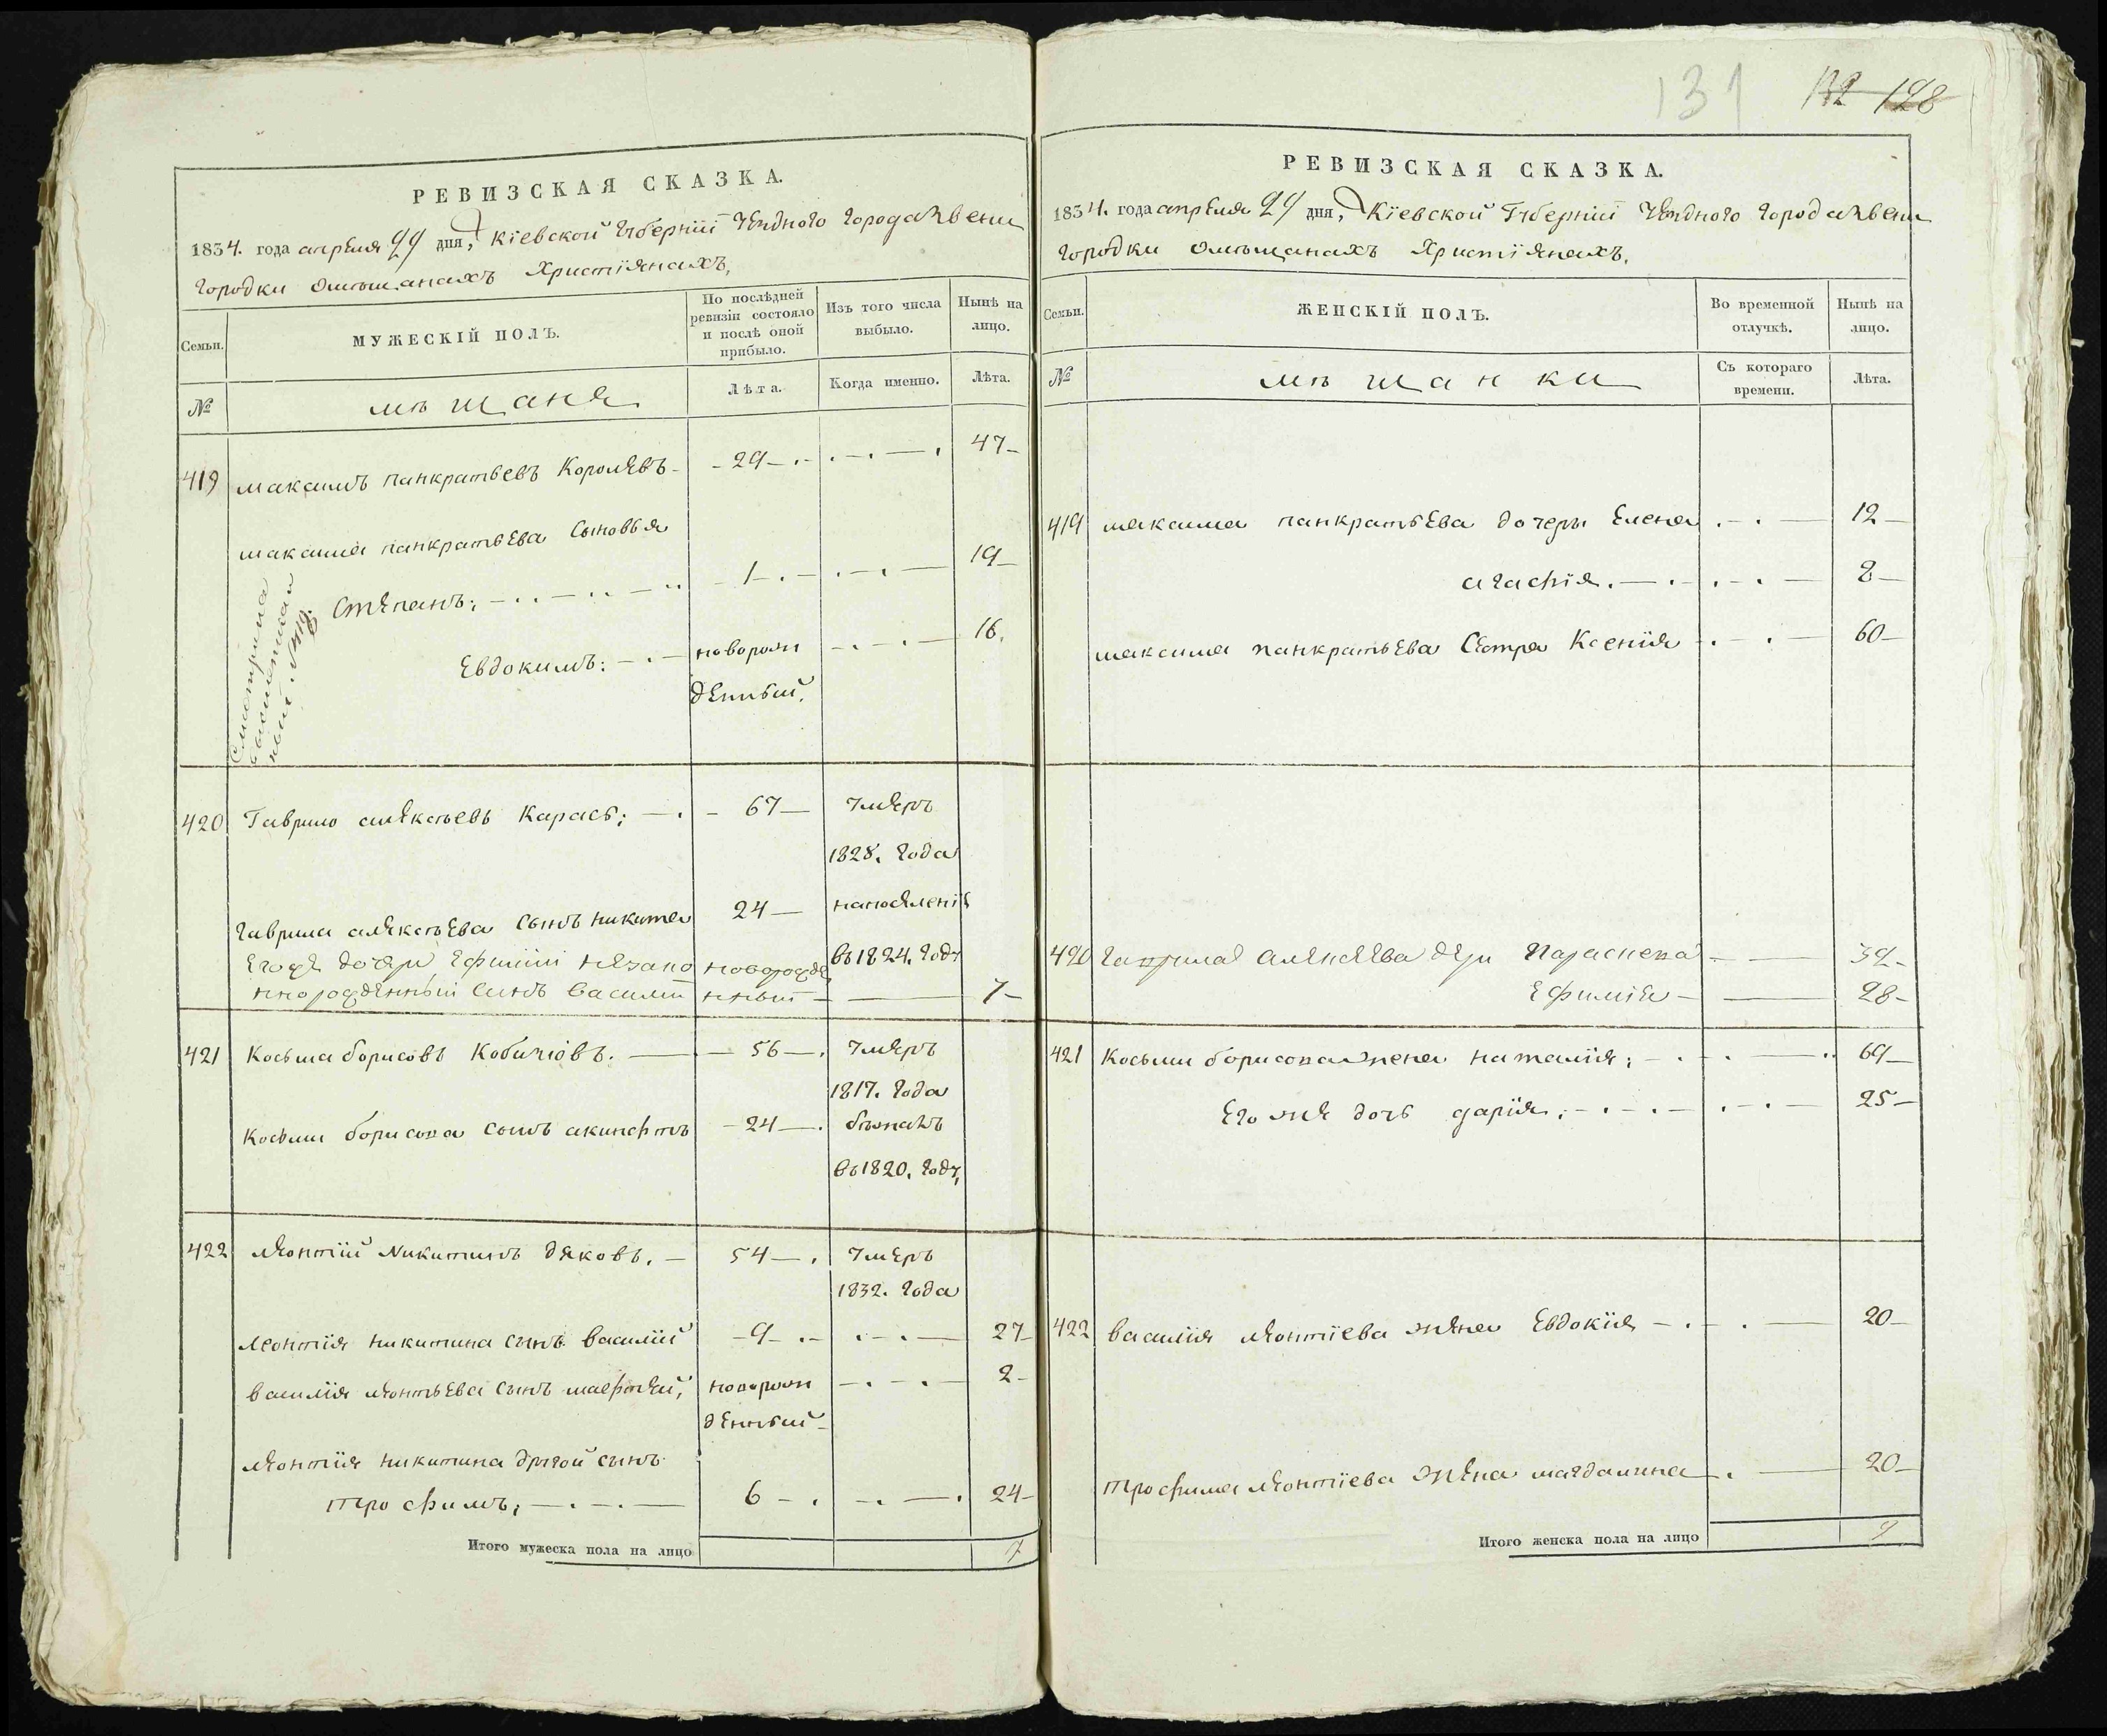 131 132 128
РЕВИЗСКАЯ СКАЗКА.
1834. года апреля 29 дня, Кіевской Губерніи Уездного города Звени
городки омѣщанахъ Християнахъ,
Семьи.
МУЖЕСКІЙ ПОЛЪ.
По послѣдней
ревизіи состояло
и послѣ оной
прибыло.
Изъ того числа
выбыло.
Нынѣ на
лицо.
№
мѣщаня
Лѣта.
Когда именно.
Лѣта.
419 максимъ панкратьевъ Королевъ - 29 47
максима панкратьева сыновья
Степанъ; 1 19
Евдокимъ: новорож 16.
денный.
420 Гаврило алексѣевъ Карась; 67 умеръ
1828. года
гаврила алексѣева сынъ никита 24 напоселеніе
въ 1824. году
Егоже дочери Ефиміи незако новорожде
ннорожденный сынъ василій нный 7
421 Косьма борисовъ 56 умеръ
1817. года
Косьми борисова сынъ акинфъ 24 бежалъ
въ 1820. году,
422 Леонтій Никитинъ дяковъ. 54 умеръ
1832. года
леонтія никитина сынъ василій 9 27
василія леонтьева сынъ матфей, новорож 2
денный
леонтія никитина другой сынъ
трофимъ; 6 24
Итого мужеска пола на лицо 7
РЕВИЗСКАЯ СКАЗКА.
1834. года апреля 29 дня, Кіевской Губерніи Уездного города Звени
городки омѣщанахъ Християнахъ.
Семьи.
ЖЕНСКІЙ ПОЛЪ.
Во временной
отлучкѣ.
Нынѣ на
лицо.
№
мѣщанки
Съ котораго
времени.
Лѣта.
419 максима панкратьева дочери Елена 12
агафія. 8
максима панкратьева Сестра Ксенія 60
420 гаврила алексеева дочери Параскева 32
Ефимія 28
421 Косьми борисова жена наталія; 69
Его же дочь дарія. 25
422 василія леонтіева жена Евдокія 20
трофима леонтіева жена магдалина 20
Итого женска пола на лицо 9